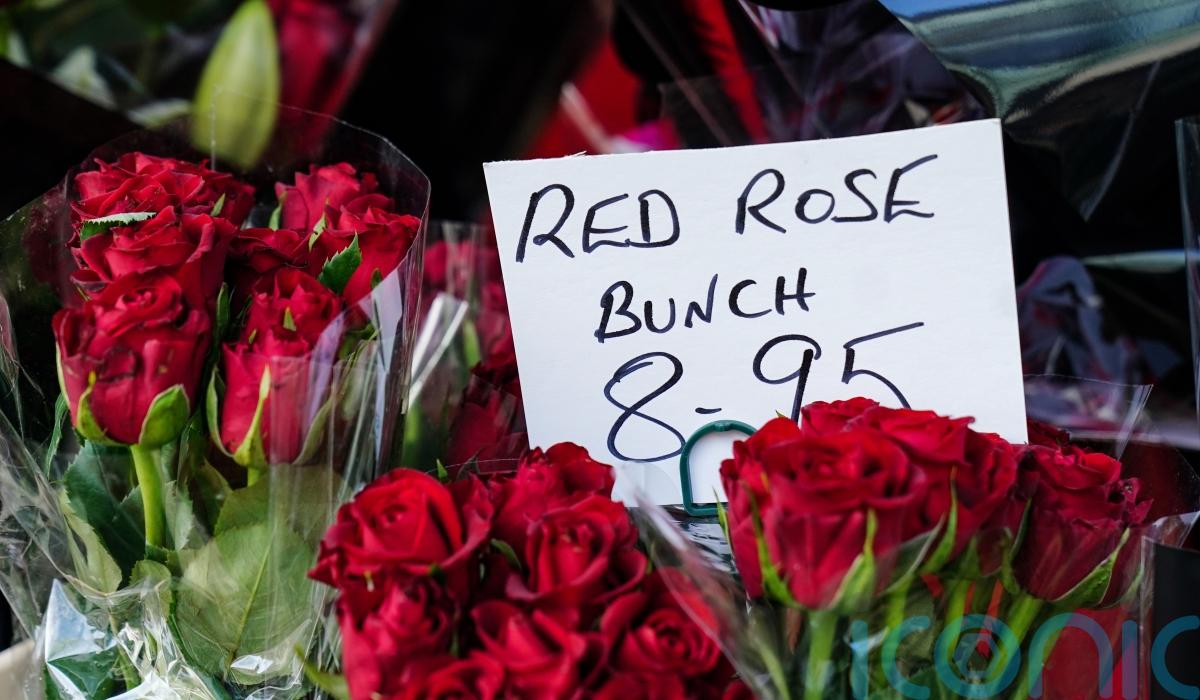 RED ROSE
BUNCH
8-95
iconic